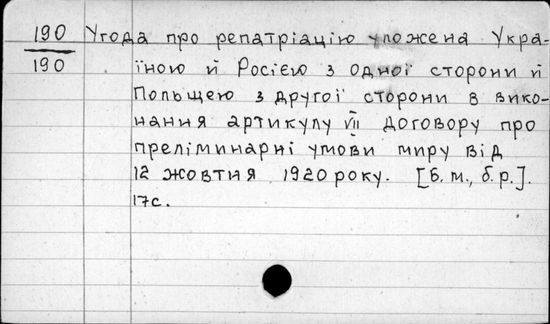 190 Угода про репатріацію уложена Укра-
190 їною й Росією з одної сторони й
Польщею з другої сторони в вико-
нання артикулу VII договору про
преліминарні умови миру від
12 жовтня 1920 року. [Б.м., б.р.].
17с.